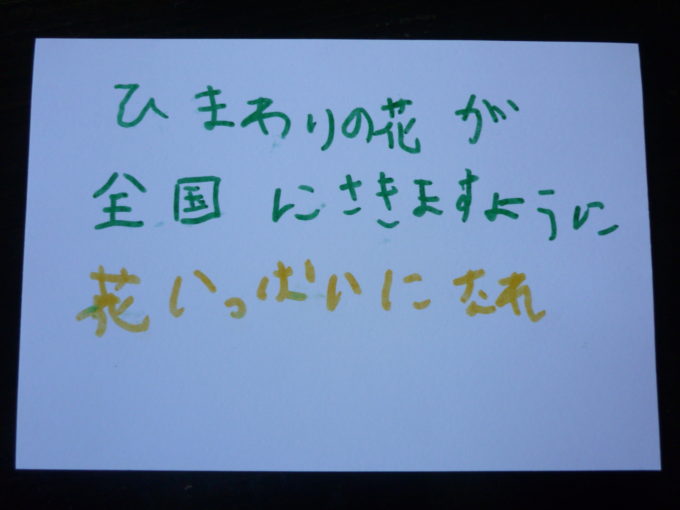 ひまわりの花が
全国にさきますように
花いっぱいになれ